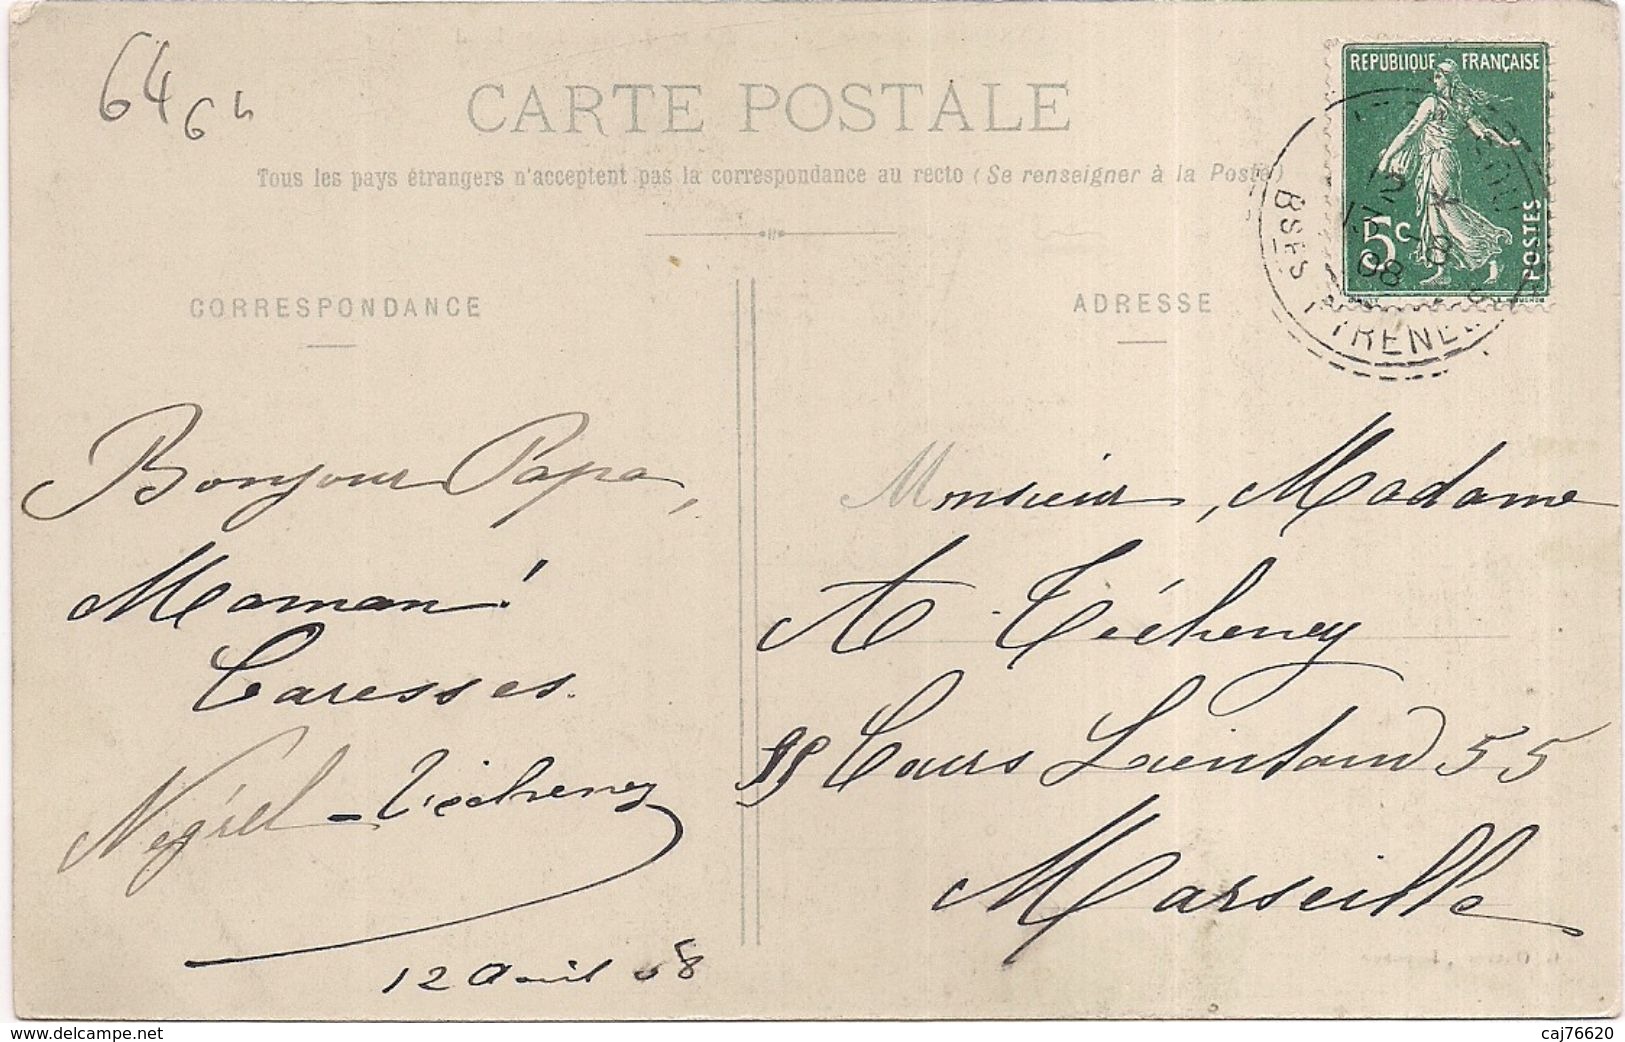 64 64
CARTE POSTALE
Tous les pays étrangers n'acceptent pas la correspondance au recto (Se renseigner à la Poste)
REPUBLIQUE FRANÇAISE
5c
POSTES
12
8
08
BSES PYRENEES
CORRESPONDANCE
Bonjour Papa,
Maman!
Caresses.
Négrel-Técheney
12 Avril 08
ADRESSE
Monsieur, Madame
A Técheney
55 Cours Lieutaud 55
Marseille
www.delcampe.net
caj76620